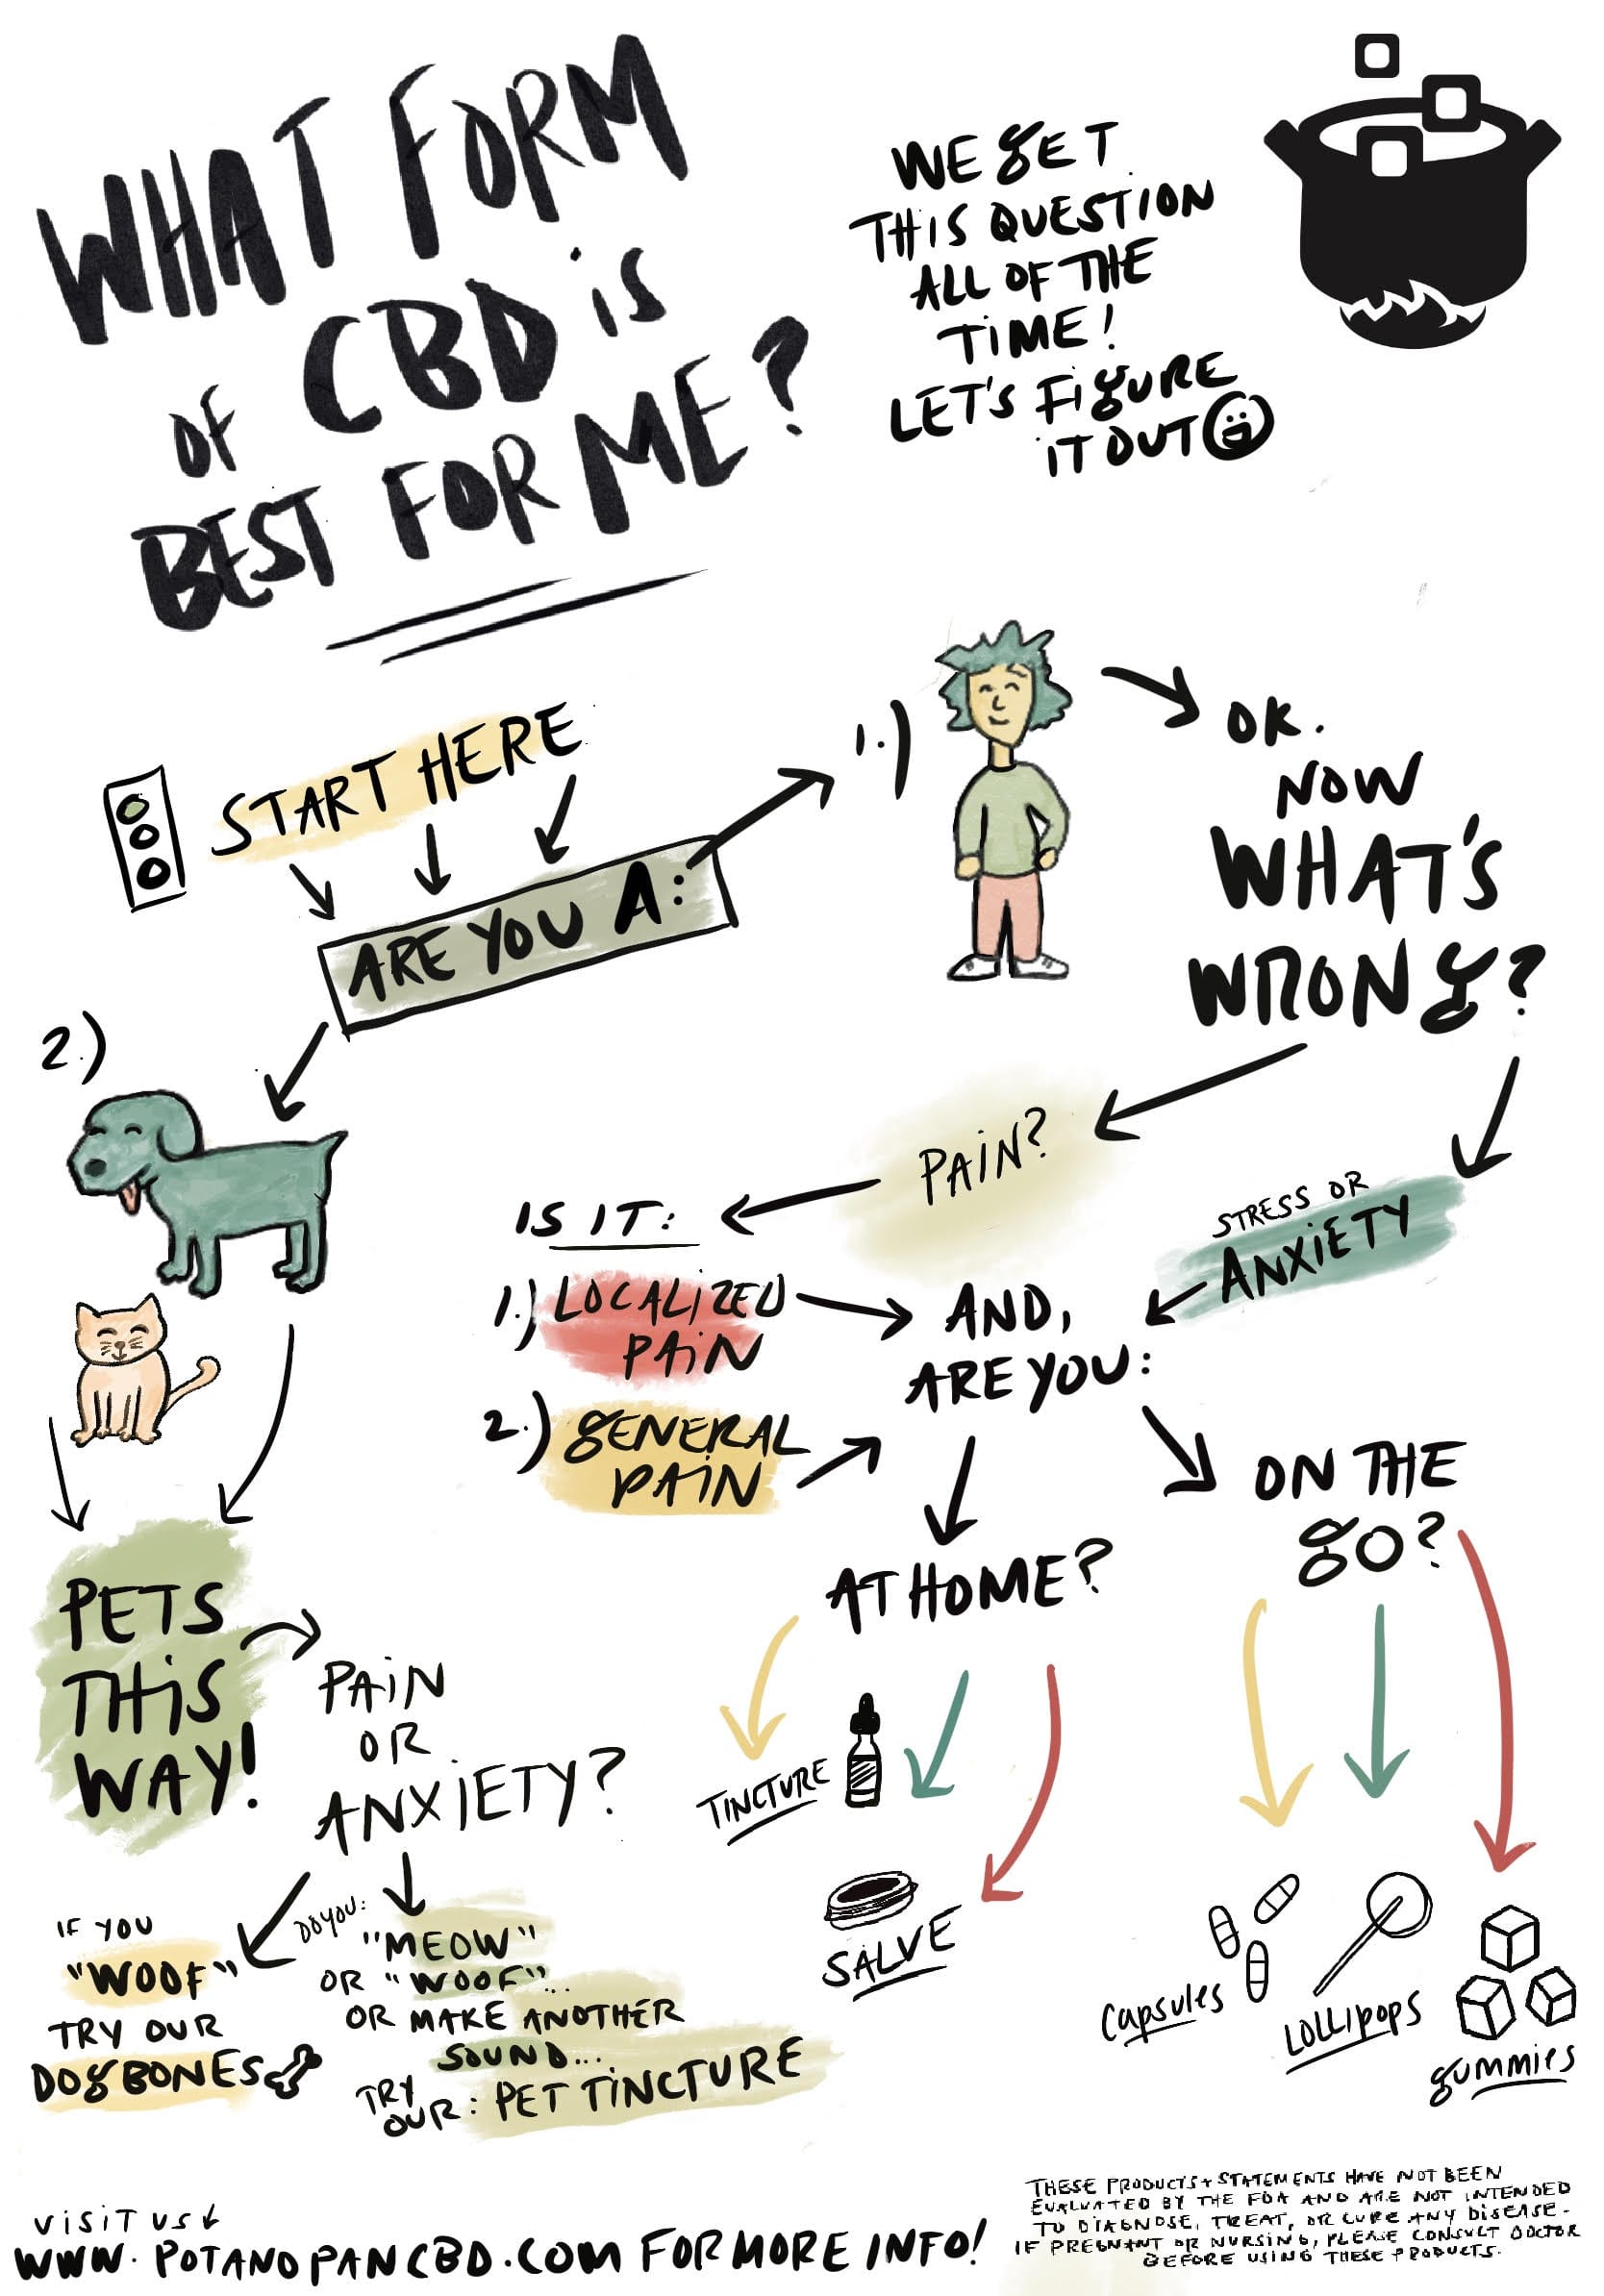 WHAT FORM
OF CBD is
BEST FOR ME?
WE GET
THIS QUESTION
ALL OF THE
TIME!
LET'S FIGURE
IT OUT
START HERE
ARE YOU A:
1.)
OK.
NOW
WHAT'S
WRONG?
2.)
PAIN?
STRESS OR
ANXIETY
IS IT:
1.) LOCALIZED
PAIN
2.) GENERAL
PAIN
AND,
ARE YOU:
AT HOME?
ON THE
GO?
TINCTURE
SALVE
Capsules
LOLLIPOPS
gummies
PETS
THIS
WAY!
PAIN
OR
ANXIETY?
IF YOU
"WOOF"
TRY OUR
DOG BONES
DO YOU:
"MEOW"
OR "WOOF"...
OR MAKE ANOTHER
SOUND...
TRY
OUR: PET TINCTURE
VISIT US
WWW.POTANDPANCBD.COM FOR MORE INFO!
THESE PRODUCTS + STATEMENTS HAVE NOT BEEN
EVALUATED BY THE FDA AND ARE NOT INTENDED
TO DIAGNOSE, TREAT, OR CURE ANY DISEASE.
IF PREGNANT OR NURSING, PLEASE CONSULT DOCTOR
BEFORE USING THESE PRODUCTS.